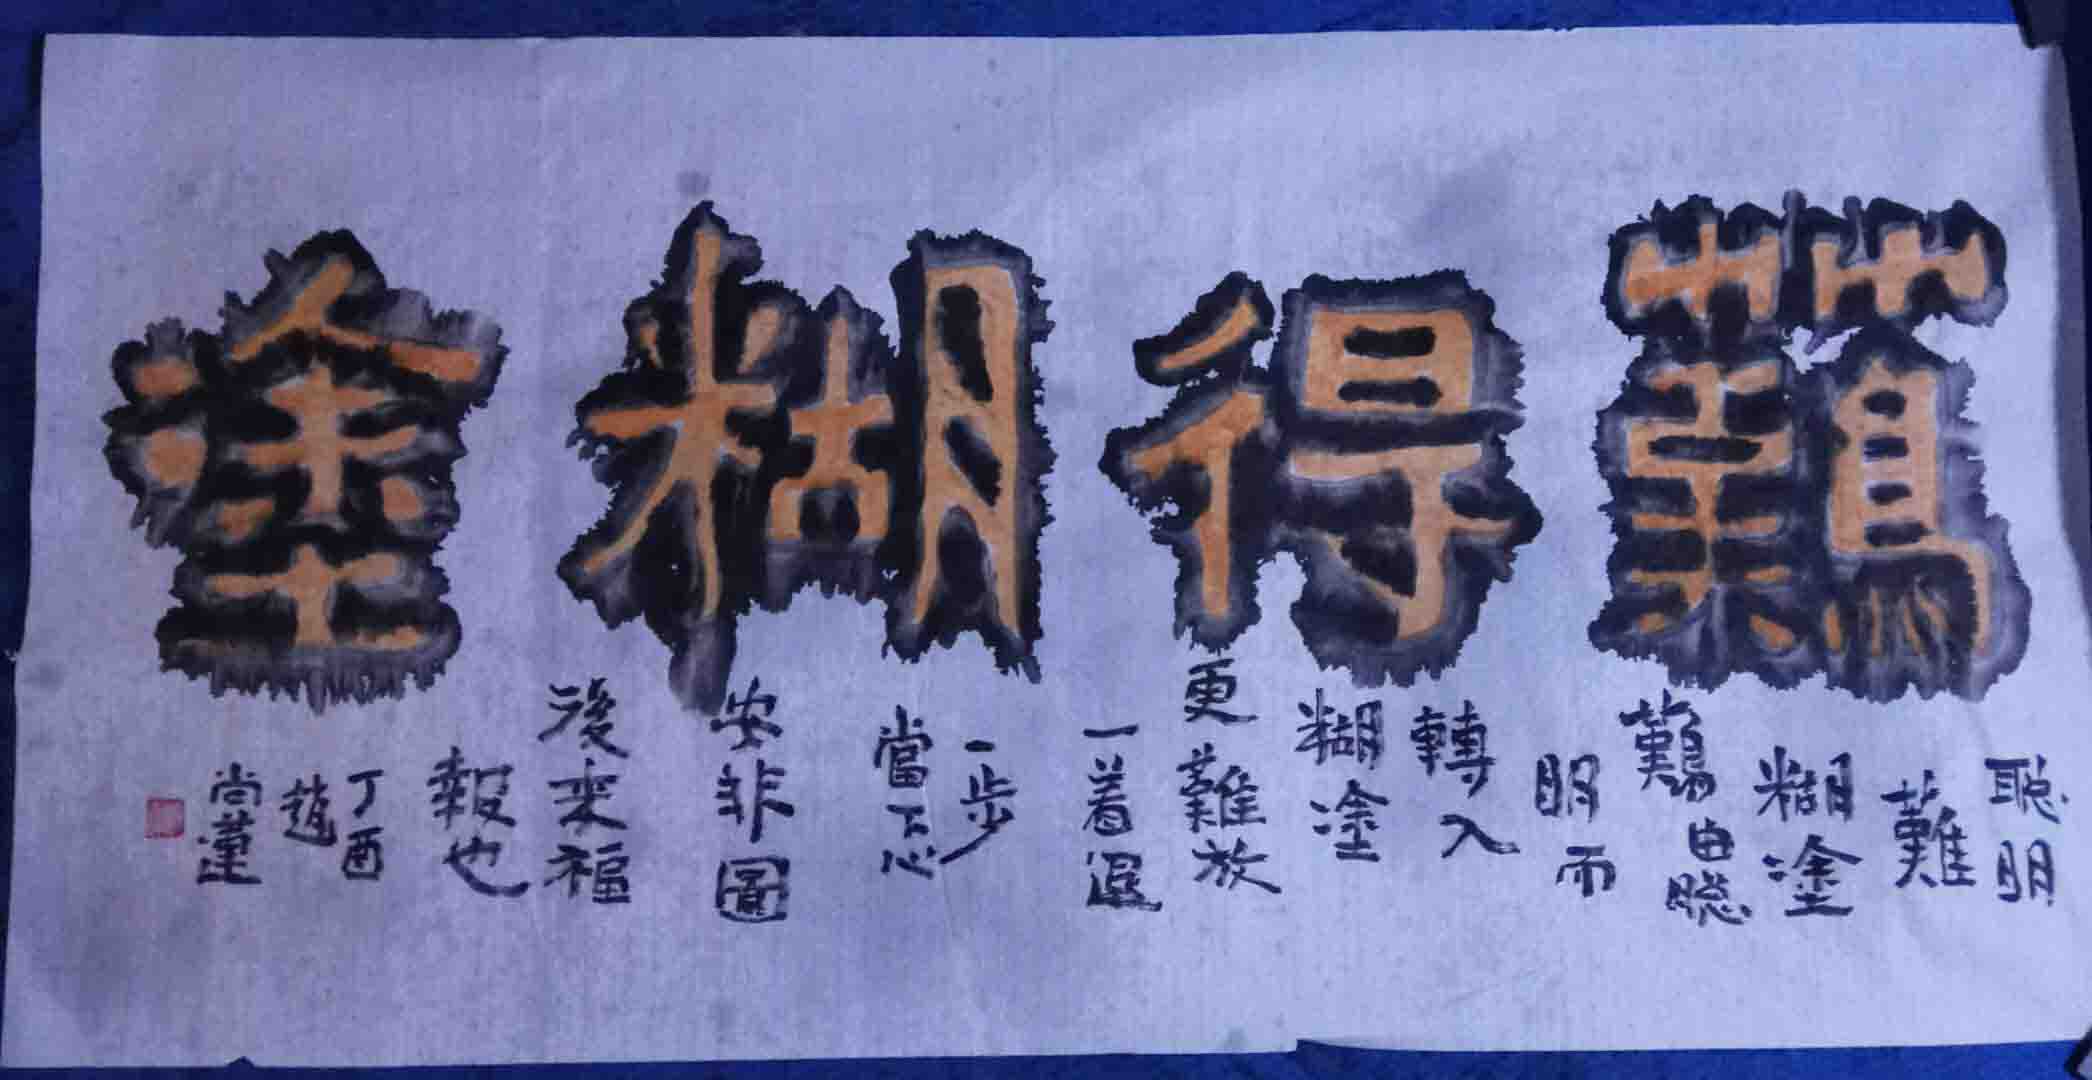 難得糊塗
聪明
難
糊塗
難由聰
明而
轉入
糊塗
更難放
一着退
一步
當下心
安非圖
後来福
報也
丁酉
趙
尚